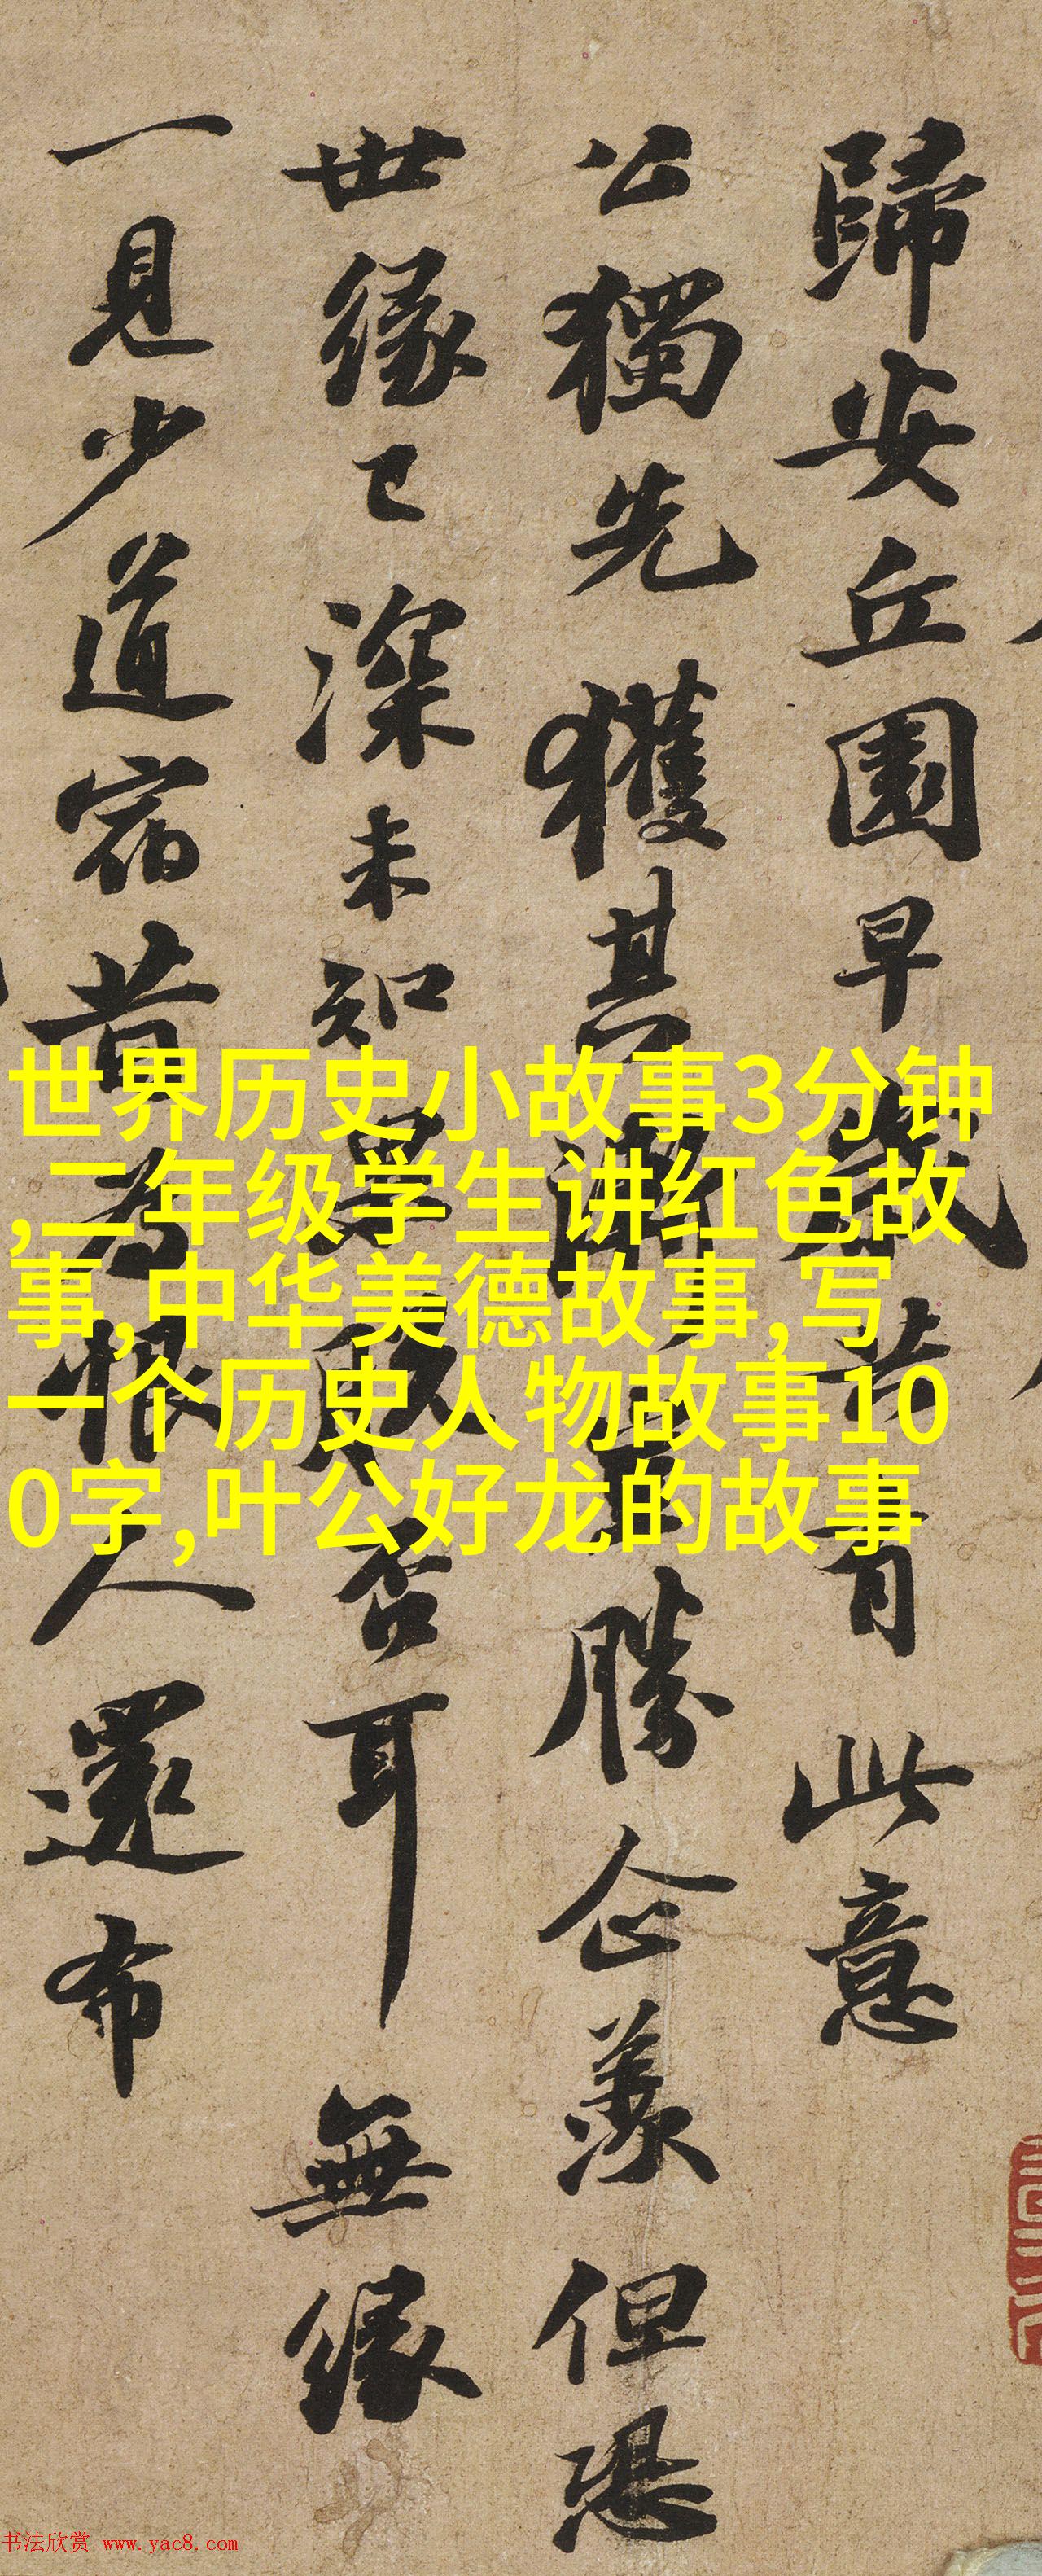 歸安丘園早歲共有此意
公獨先獲其漸豈勝企羨但恐
世緣已深未知果脫否耳無緣
一見少道宿昔為恨人還布
世界历史小故事3分钟
,二年级学生讲红色故
事,中华美德故事,写
一个历史人物故事10
0字,叶公好龙的故事
书法欣赏 www.yac8.com